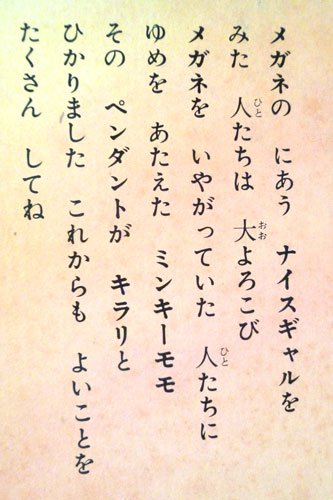 メガネの にあう ナイスギャルを
みた 人たちは 大よろこび
メガネを いやがっていた 人たちに
ゆめを あたえた ミンキーモモ
その ペンダントが キラリと
ひかりました これからも よいことを
たくさん してね